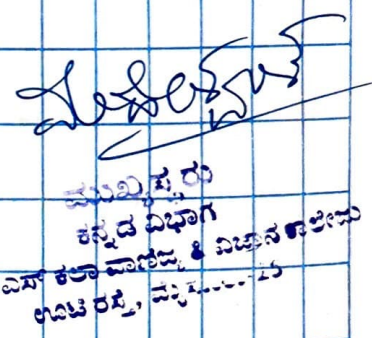 ಮುಖ್ಯಸ್ಥರು
ಕನ್ನಡ ವಿಭಾಗ
ಎಸ್ ಕಲಾ ವಾಣಿಜ್ಯ & ವಿಜ್ಞಾನ ಕಾಲೇಜು
ಊಟಿ ರಸ್ತೆ,